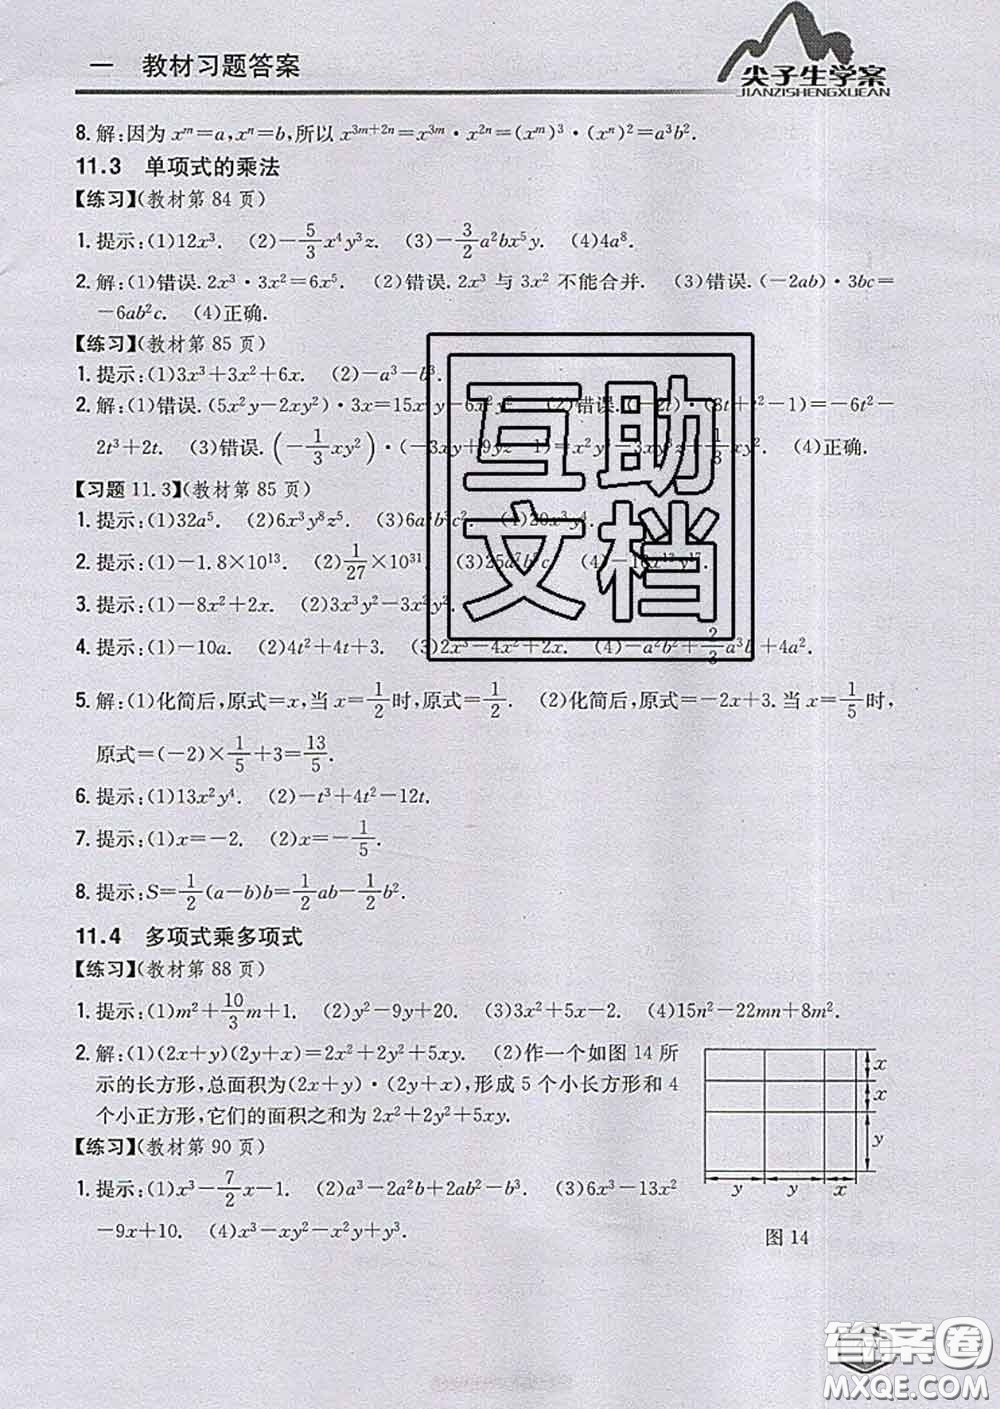 一 教材习题答案
尖子生学案
JIANZISHENGXUEAN
8.解:因为 x^m=a,x^n=b,所以 x^{3m+2n}=x^{3m}·x^{2n}=(x^m)^3·(x^n)^2=a^3b^2.
11.3 单项式的乘法
【练习】(教材第 84 页)
1.提示:(1)12x^3. (2)-5/3x^4y^3z. (3)-3/2a^2bx^5y. (4)4a^8.
2.解:(1)错误.2x^3·3x^2=6x^5. (2)错误.2x^3 与 3x^2 不能合并. (3)错误.(-2ab)·3bc=
-6ab^2c. (4)正确.
【练习】(教材第 85 页)
1.提示:(1)3x^3+3x^2+6x. (2)-a^3-b^3.
2.解:(1)错误.(5x^2y-2xy^2)·3x=15x y-6x^2y^2 (2)错误.(-2t)·(3t+t^2-1)=-6t^2-
2t^3+2t. (3)错误.(-1/3xy^2)·(-3xy+9yz 1)=x^2 xy^3z+1/3xy^2. (4)正确.
【习题 11.3】(教材第 85 页)
1.提示:(1)32a^5. (2)6x^3y^8z^5. (3)6a b^3c^2. (4)20x^3y^4.
2.提示:(1)-1.8×10^13. (2)1/27×10^31. (3)25a^7b^5c. (4)-16x^13y^17.
3.提示:(1)-8x^2+2x. (2)3x^3y^2-3x^2y^2.
4.提示:(1)-10a. (2)4t^2+4t+3. (3)2x^3-4x^2+2x. (4)-a^2b^2+2/3a^3b+4a^2.
5.解:(1)化简后,原式=x,当 x=1/2时,原式=1/2. (2)化简后,原式=-2x+3.当 x=1/5时,
原式=(-2)×1/5+3=13/5.
6.提示:(1)13x^2y^4. (2)-t^3+4t^2-12t.
7.提示:(1)x=-2. (2)x=-1/5.
8.提示:S=1/2(a-b)b=1/2ab-1/2b^2.
11.4 多项式乘多项式
【练习】(教材第 88 页)
1.提示:(1)m^2+10/3m+1. (2)y^2-9y+20. (3)3x^2+5x-2. (4)15n^2-22mn+8m^2.
2.解:(1)(2x+y)(2y+x)=2x^2+2y^2+5xy. (2)作一个如图 14 所
示的长方形,总面积为(2x+y)·(2y+x),形成 5 个小长方形和 4
个小正方形,它们的面积之和为 2x^2+2y^2+5xy.
【练习】(教材第 90 页)
1.提示:(1)x^3-7/2x-1. (2)a^3-2a^2b+2ab^2-b^3. (3)6x^3-13x^2
-9x+10. (4)x^3-xy^2-x^2y+y^3.
x
x
y
y y x
图 14
互助
文档
答案圈
MXQE.COM